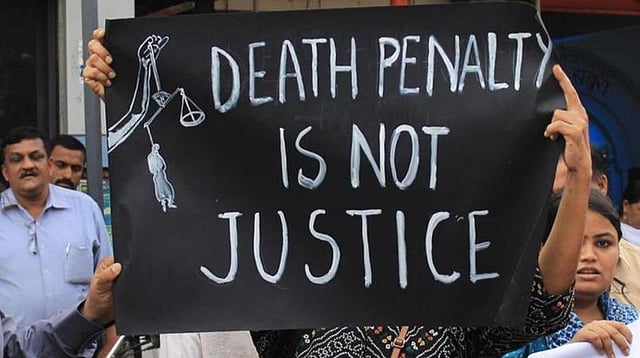 DEATH PENALTY
IS NOT
JUSTICE